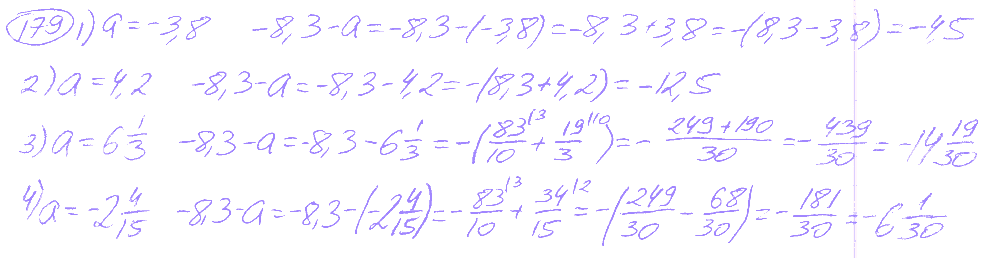 179 1) a = -3,8   -8,3-a = -8,3-(-3,8) = -8,3+3,8 = -(8,3-3,8) = -4,5
2) a = 4,2   -8,3-a = -8,3-4,2 = -(8,3+4,2) = -12,5
3) a = 6 1/3   -8,3-a = -8,3-6 1/3 = -(83/10 \3 + 19/3 \10) = - (249+190)/30 = - 439/30 = -14 19/30
4) a = -2 4/15   -8,3-a = -8,3-(-2 4/15) = - 83/10 \3 + 34/15 \2 = -(249/30 - 68/30) = - 181/30 = -6 1/30